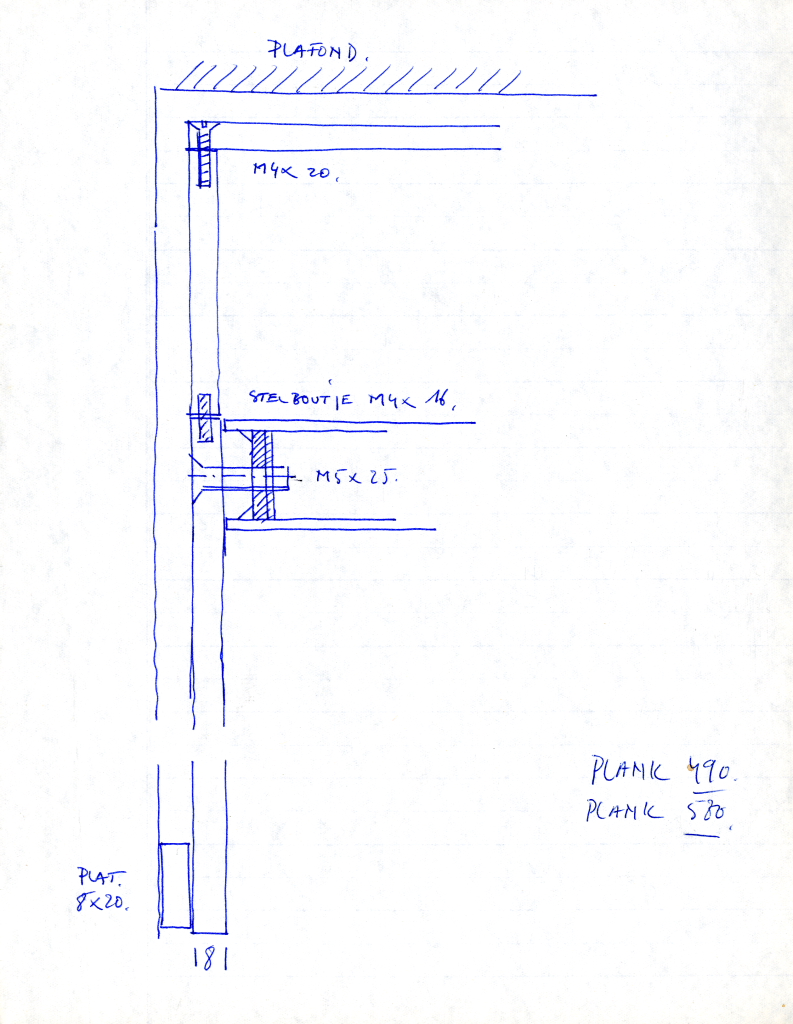 PLAFOND.
M4x 20.
STELBOUTJE M4x 16.
M5x25.
PLANK 490.
PLANK 580.
PLAT.
8x20.
|8|